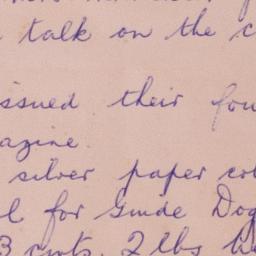 talk on the c
issued their fou
azine.
silver paper col
l for Guide Dog
3 cwts. 2 lbs h